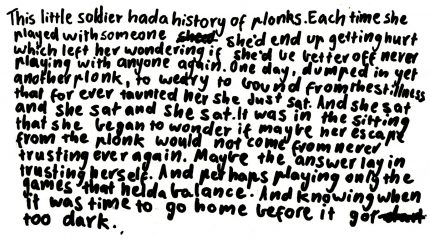 This little soldier had a history of plonks. Each time she
played with someone she'd end up getting hurt
which left her wondering if she'd be better off never
playing with anyone again. One day, dumped in yet
another plonk, to weary to bound from the stillness
that for ever taunted her she just sat. And she sat
and she sat and she sat. It was in the sitting
that she began to wonder if maybe her escape
from the plonk would not come from never
trusting ever again. Maybe the answer lay in
trusting herself. And perhaps playing only the
games that held a balance. And knowing when
it was time to go home before it got
too dark.